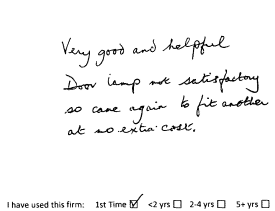 Very good and helpful
Door lamp not satisfactory
so came again to fit another
at no extra cost.
I have used this firm: 1st Time ☑ <2 yrs ☐ 2-4 yrs ☐ 5+ yrs ☐